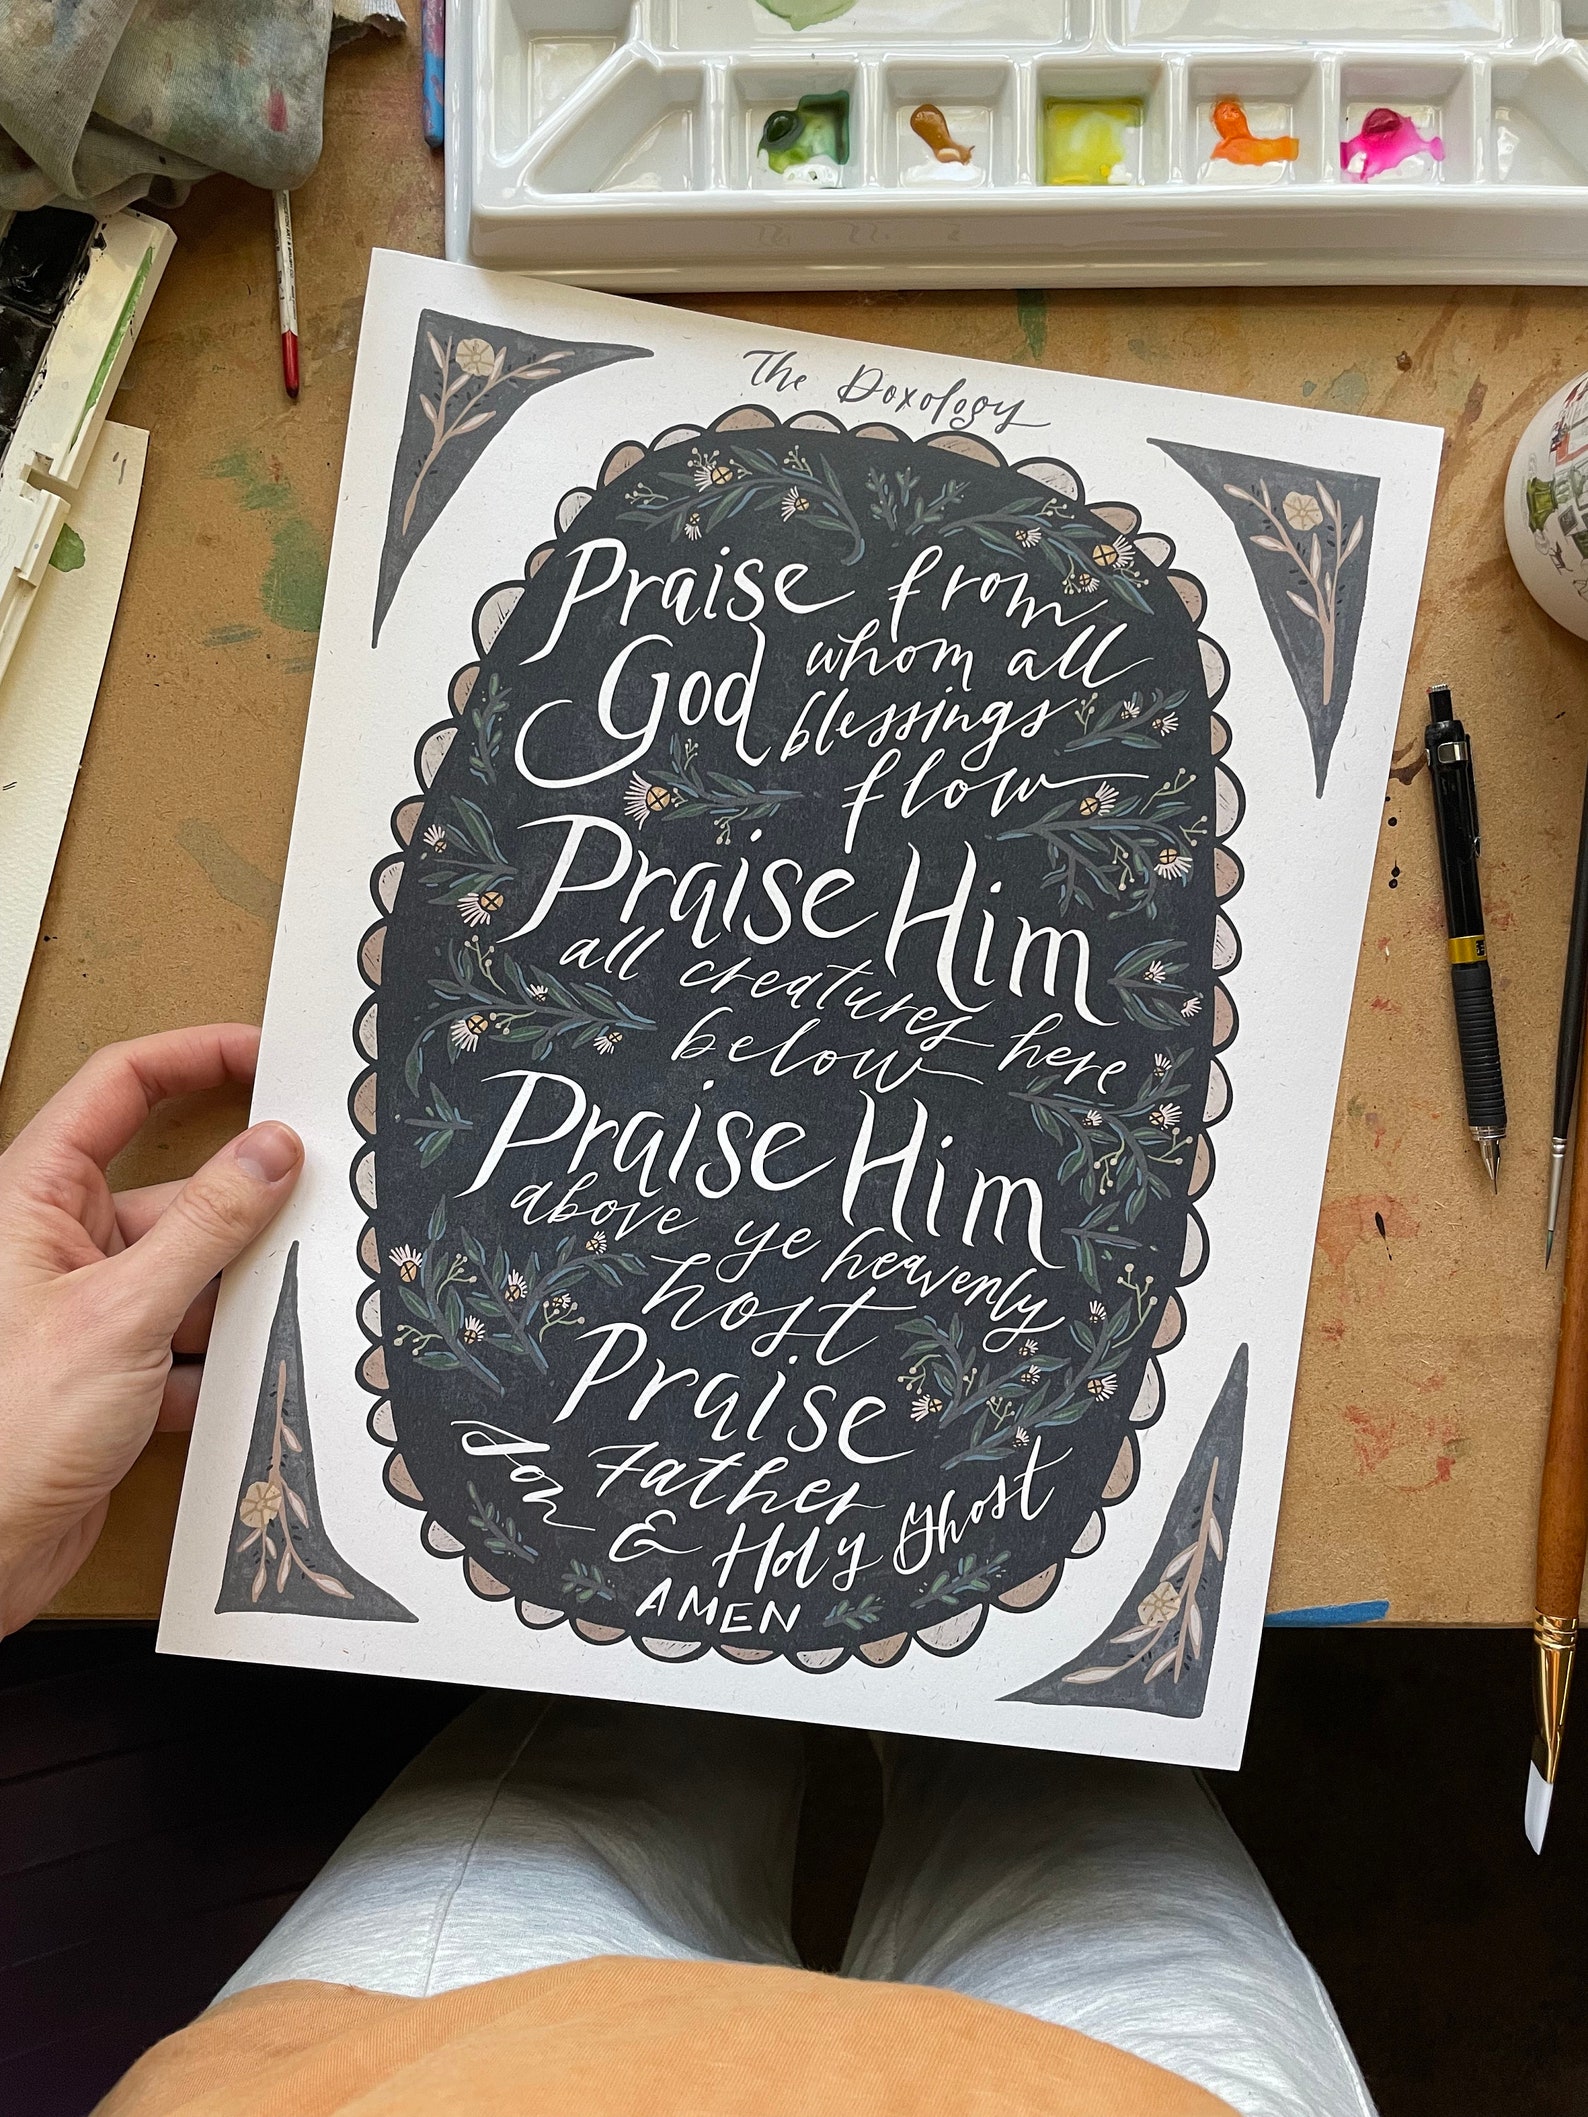 The Doxology
Praise God from whom all
blessings flow
Praise Him
all creatures here
below
Praise Him
above ye heavenly
host
Praise
Father
Son & Holy Ghost
AMEN